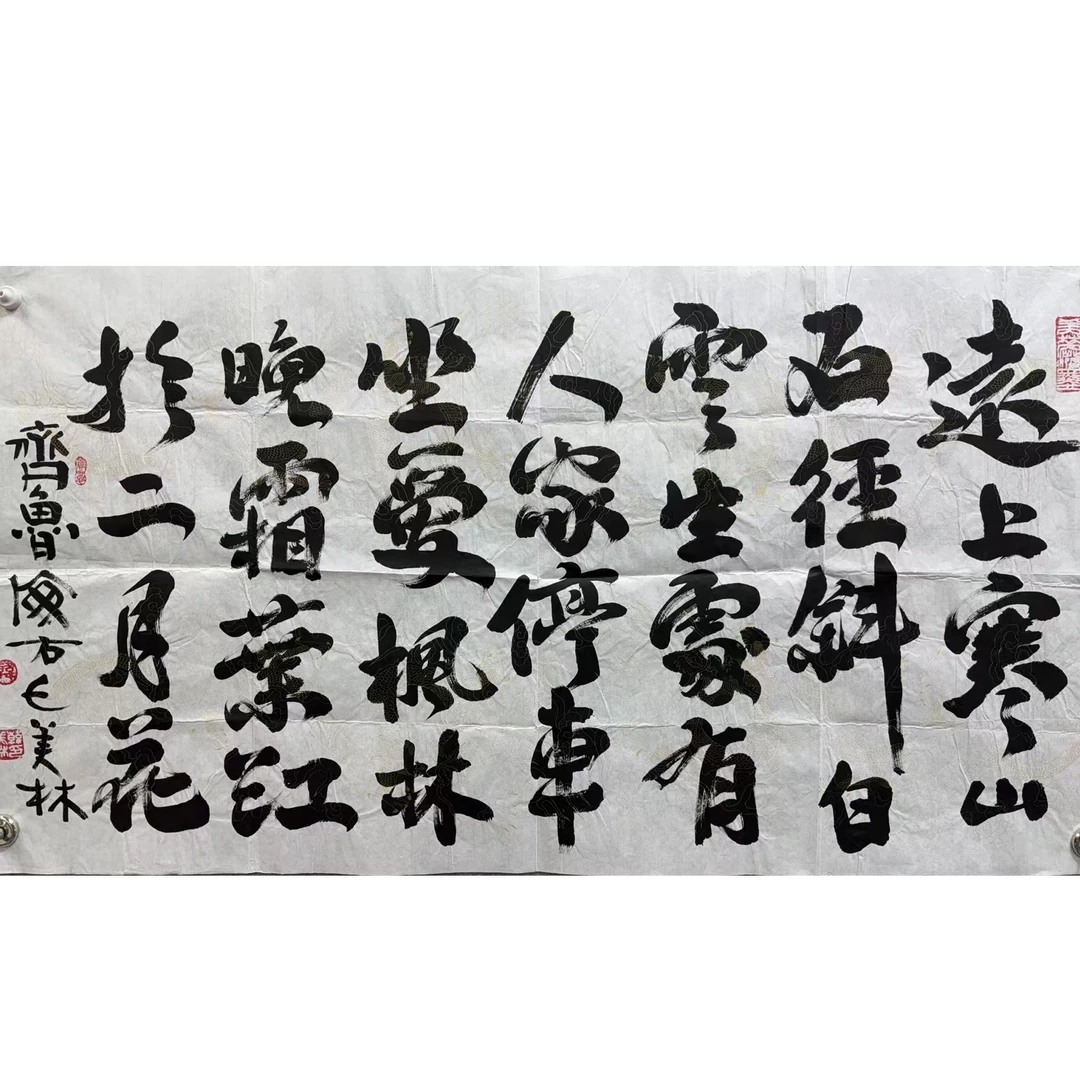 遠上寒山
石徑斜白
雲生處有
人家停車
坐愛楓林
晚霜葉紅
於二月花
齊魯美林